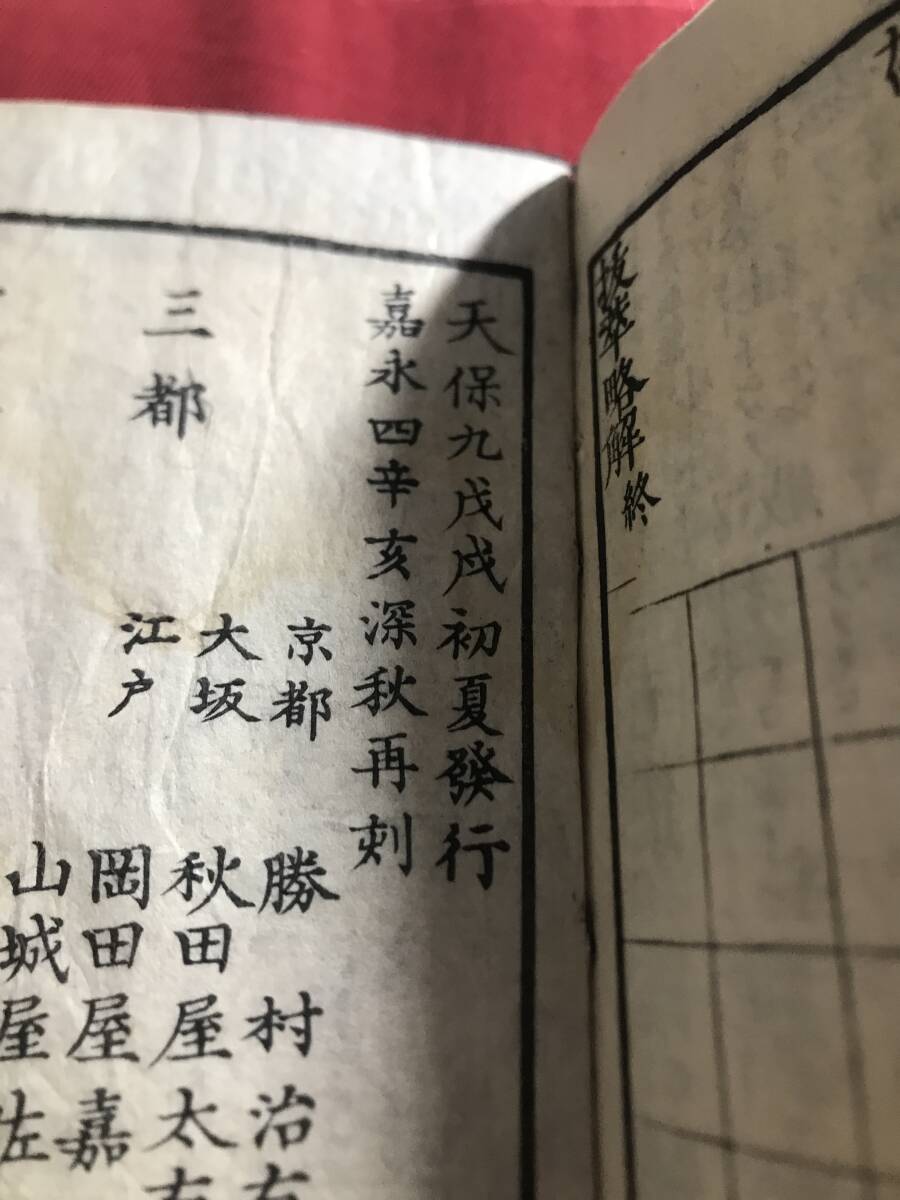 抜萃略解終
天保九戊戌初夏發行
嘉永四辛亥深秋再刻
三都
京都 勝村治右
大坂 秋田屋太右
岡田屋嘉
江戸 山城屋佐